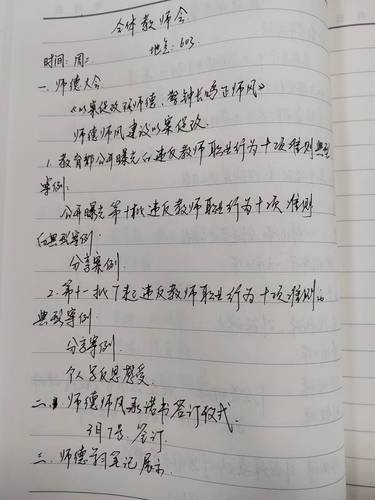 全体教师会
地点：603.
时间：周二
一、师德大会
《以案促改强师德，警钟长鸣正师风》
师德师风建设以案促改.
1. 教育部公开曝光的违反教师职业行为十项准则典型
案例：
公开曝光第十批违反教师职业行为十项准则
的典型案例.
分享案例.
2. 第十一批7起违反教师职业行为十项准则的
典型案例.
分享案例.
个人写反思感受.
二、师德师风承诺书签订仪式.
3月7号签订.
三、师德笔记展示.